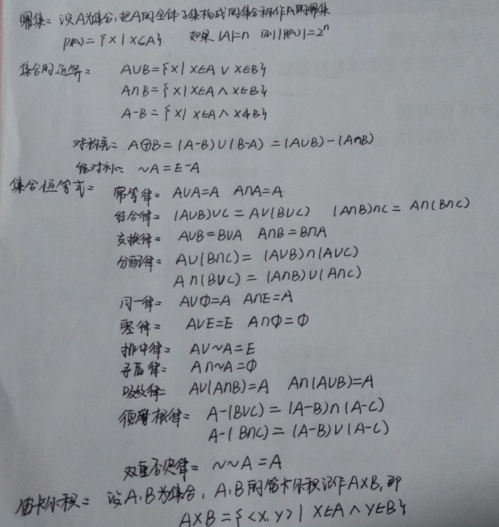 幂集: 设A为集合,把A的全体子集构成的集合称作A的幂集
P(A)={x|x⊆A} 如果|A|=n 则|P(A)|=2ⁿ
集合的运算:
A∪B={x|x∈A∨x∈B}
A∩B={x|x∈A∧x∈B}
A-B={x|x∈A∧x∉B}
对称差: A⊕B=(A-B)∪(B-A)=(A∪B)-(A∩B)
绝对补: ~A=E-A
集合恒等式: 幂等律: A∪A=A A∩A=A
结合律: (A∪B)∪C=A∪(B∪C) (A∩B)∩C=A∩(B∩C)
交换律: A∪B=B∪A A∩B=B∩A
分配律: A∪(B∩C)=(A∪B)∩(A∪C)
A∩(B∪C)=(A∩B)∪(A∩C)
同一律: A∪Φ=A A∩E=A
零律: A∪E=E A∩Φ=Φ
排中律: A∪~A=E
矛盾律: A∩~A=Φ
吸收律: A∪(A∩B)=A A∩(A∪B)=A
德摩根律: A-(B∪C)=(A-B)∩(A-C)
A-(B∩C)=(A-B)∪(A-C)
双重否定律: ~~A=A
笛卡尔积: 设A,B为集合, A,B的笛卡尔积记作A×B,即
A×B={<x,y>|x∈A∧y∈B}